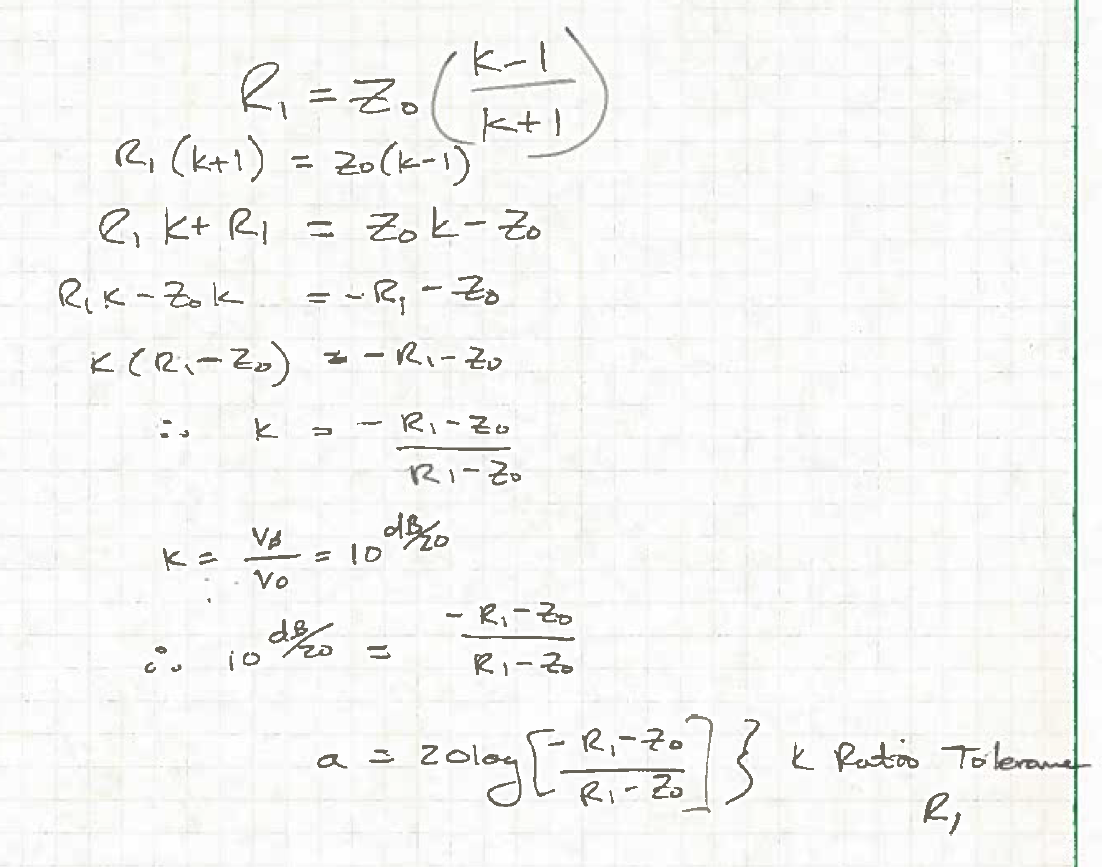 R₁ = Z₀ ( (k-1) / (k+1) )
R₁ (k+1) = Z₀(k-1)
R₁ k + R₁ = Z₀ k - Z₀
R₁ k - Z₀ k = - R₁ - Z₀
k (R₁ - Z₀) = - R₁ - Z₀
∴ k = (- R₁ - Z₀) / (R₁ - Z₀)
k = Vs / Vo = 10^(dB/20)
∴ 10^(dB/20) = (- R₁ - Z₀) / (R₁ - Z₀)
a = 20log[ (- R₁ - Z₀) / (R₁ - Z₀) ] } k Ratio Tolerance
R₁